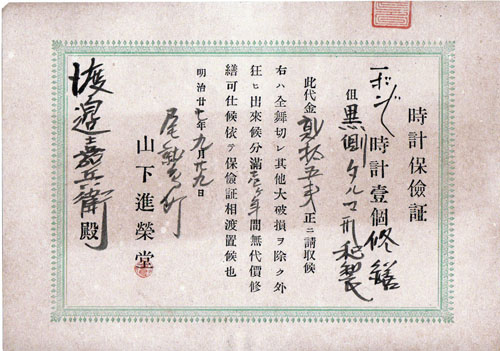 時計保儉証
一ボンジ時計壹個修繕
但黒側タルマ形私製
此代金貳拾五戋正ニ請取候
右ハ全舞切レ其他大破損ヲ除ク外
狂ヒ出來候分滿壱ヶ年間無代價修
繕可仕候依テ保儉証相渡置候也
明治廿七年九月廿九日
尾鷲町
山下進榮堂
渡邉嘉兵衛殿